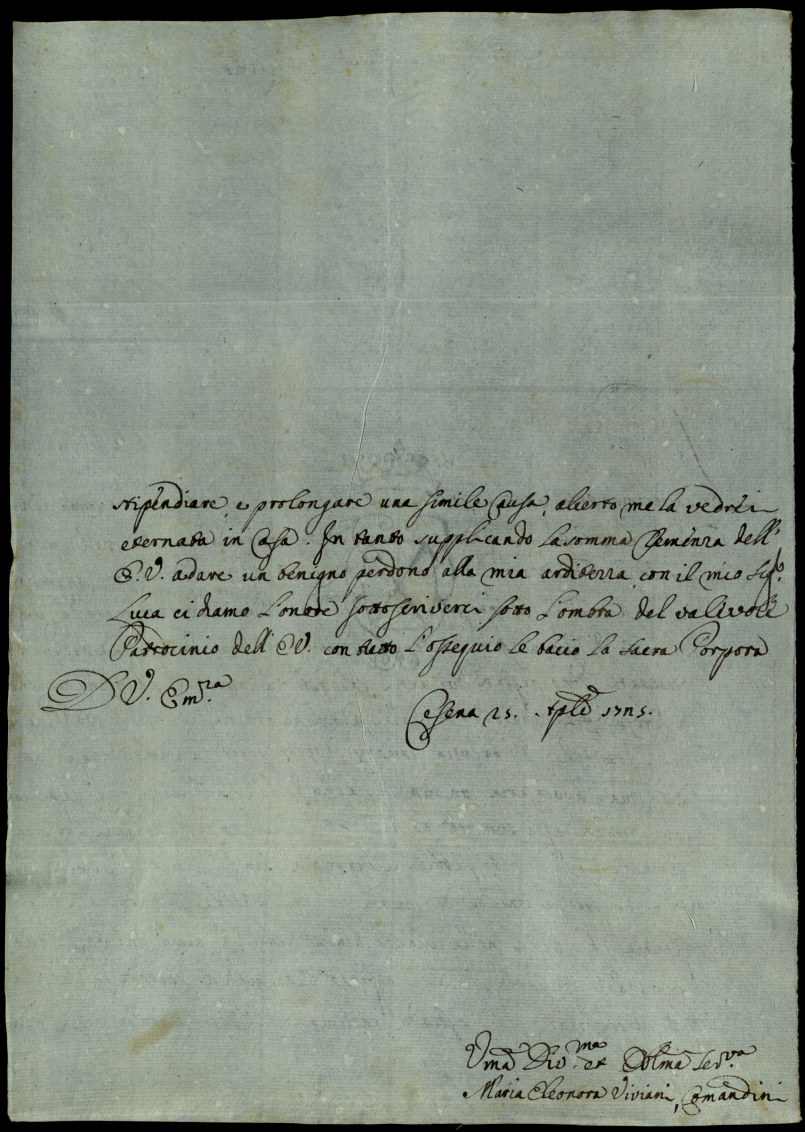 stipendiare, e prolongare una simile Causa, alierto me la vedrei
eternata in Casa. In tanto supplicando la somma Clemenza dell'
E.V. a dare un benigno perdono alla mia arditezza, con il mio Sig.o
Luca ci diamo l'onore sottoscriverci sotto l'ombra del valevole
Patrocinio dell'E.V. con tutto l'ossequio le bacio la Sacra Porpora
D. V. Em.ra
Cesena 25. Aple 1725.
Uma Div.ma et Obblma Ser.va
Maria Eleonora Viviani, Comandini